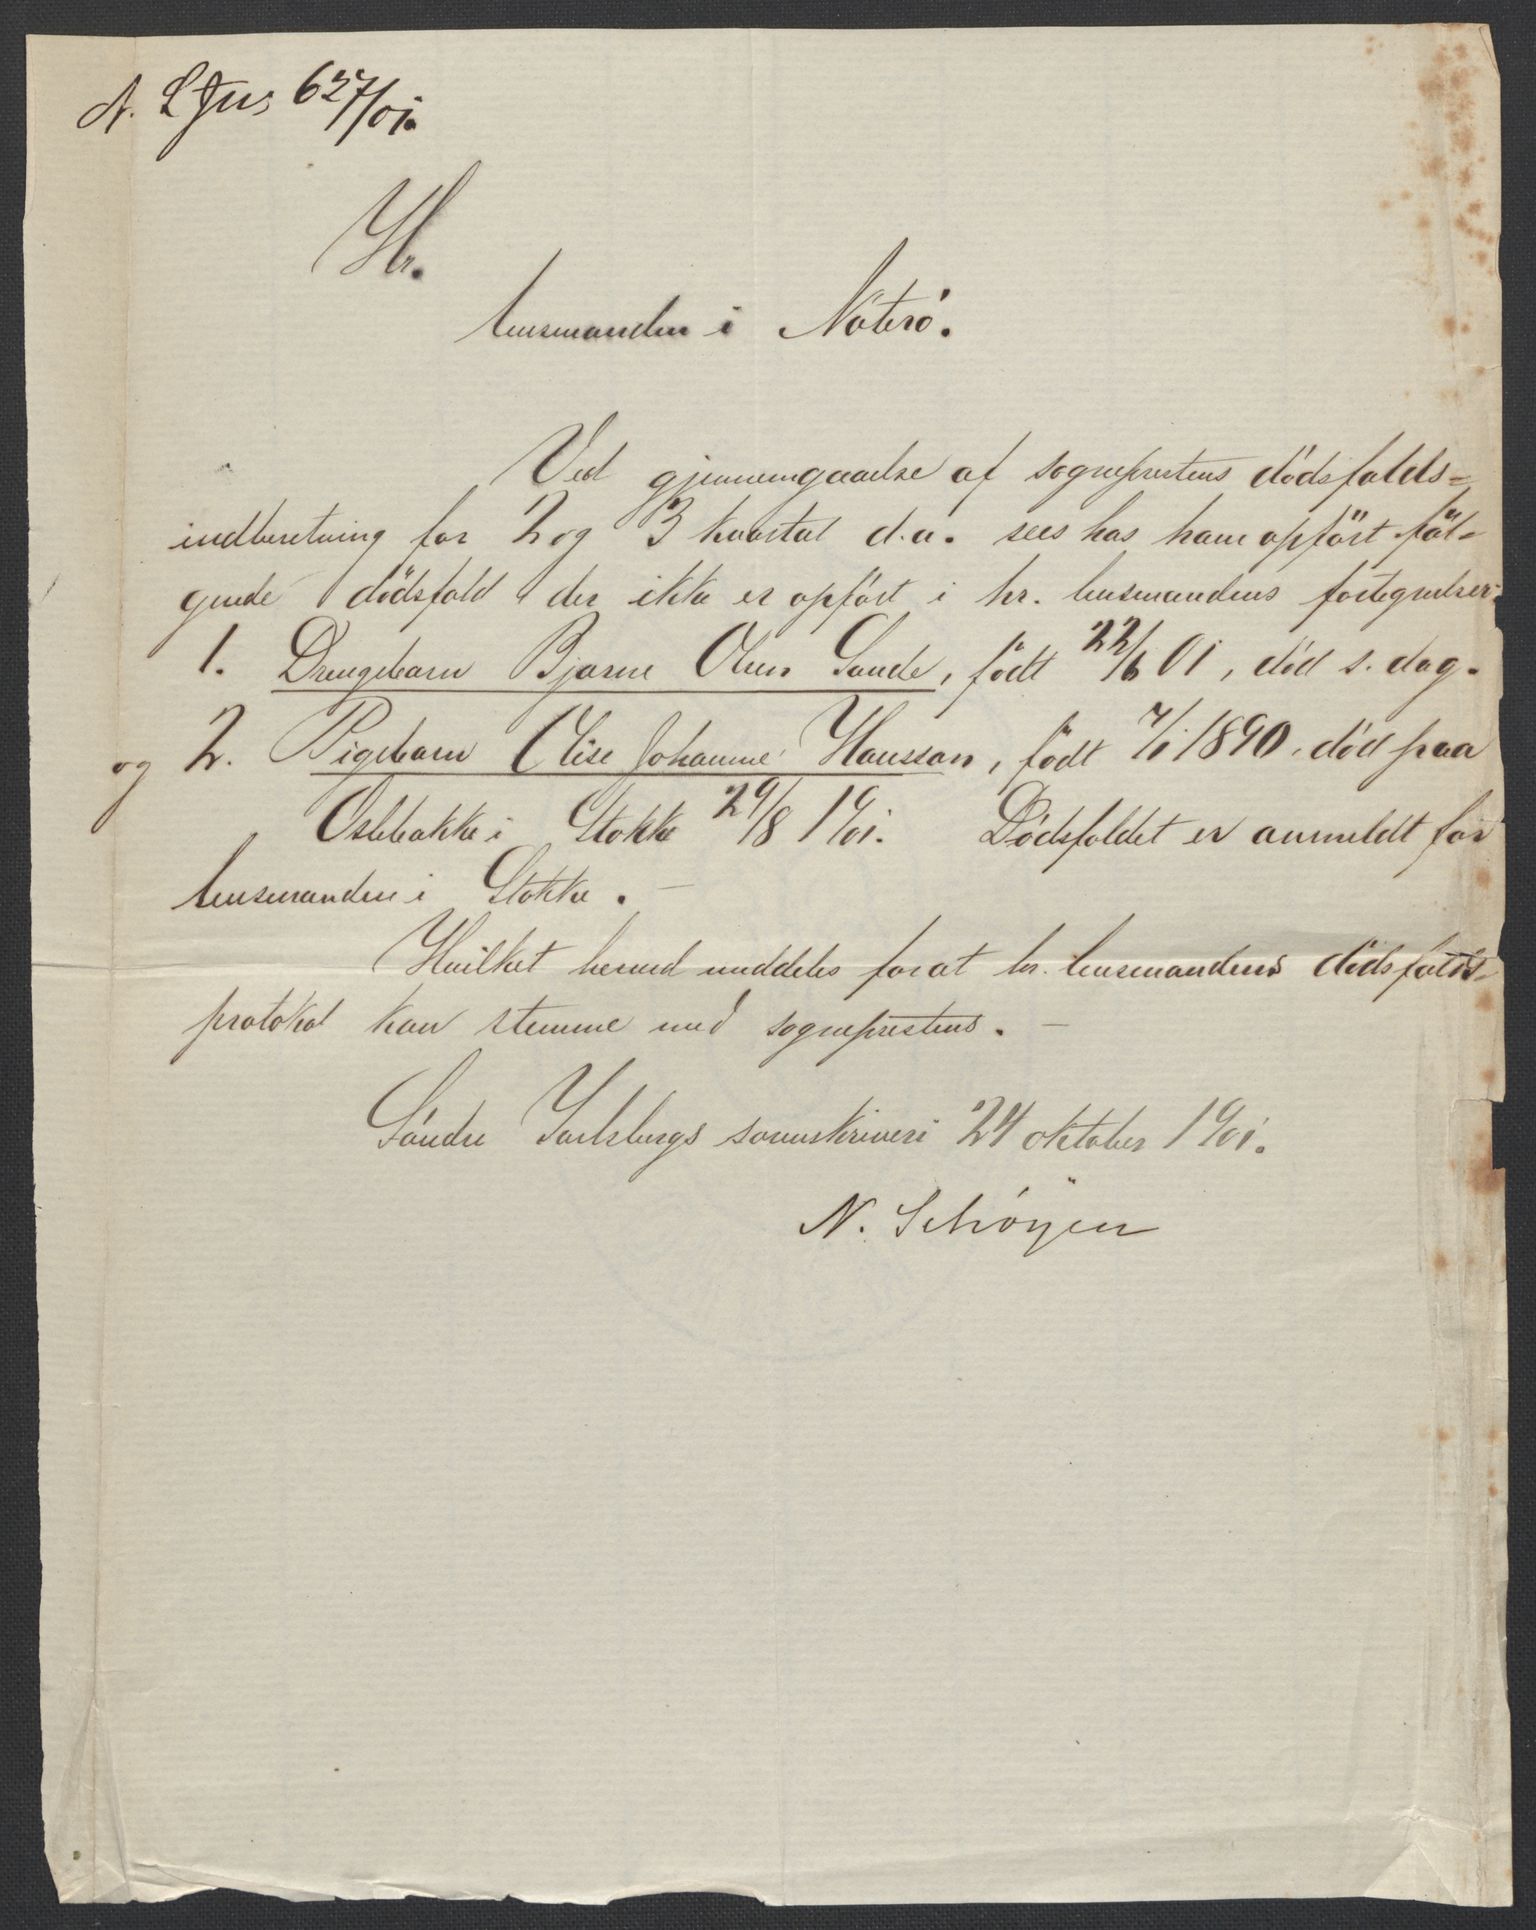 N. 627/01.
Hr.
lensmanden i Nøterø.
Ved gjennemgaaelse af sogneprestens dödsfalds-
indberetning for 2 og 3 kvartal d.a. sees hos ham opfört föl-
gende dödsfald der ikke er opfört i hr. lensmandens fortegnelser:
1. Drengebarn Bjarne Olsen Sande, födt 22/6 01, död s. dag.
og 2. Pigebarn Elise Johanne Hanssen, födt 7/1 1890, död paa
Oslebakke i Stokke 29/8 1901. Dödsfaldet er anmeldt for
lensmanden i Stokke. —
Hvilket herved meddeles forat hr. lensmandens dödsfalds-
protokol kan stemme med sogneprestens. —
Söndre Jarlsbergs sorenskriveri 24 oktober 1901.
N. Schöyen